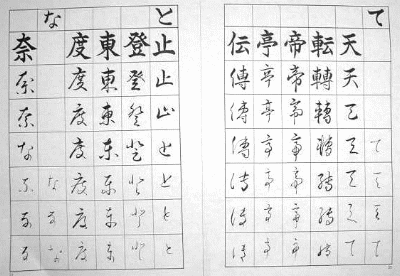 て
天天天天天天て
転轉轉轉轉轉轉
帝帝帝帝帝帝帝
亭亭亭亭亭亭亭
伝傳傳傳傳傳傳
と
止止止とととと
登登登登登登登
東東東東東東東
度度度度度度度
な
奈奈奈なななな